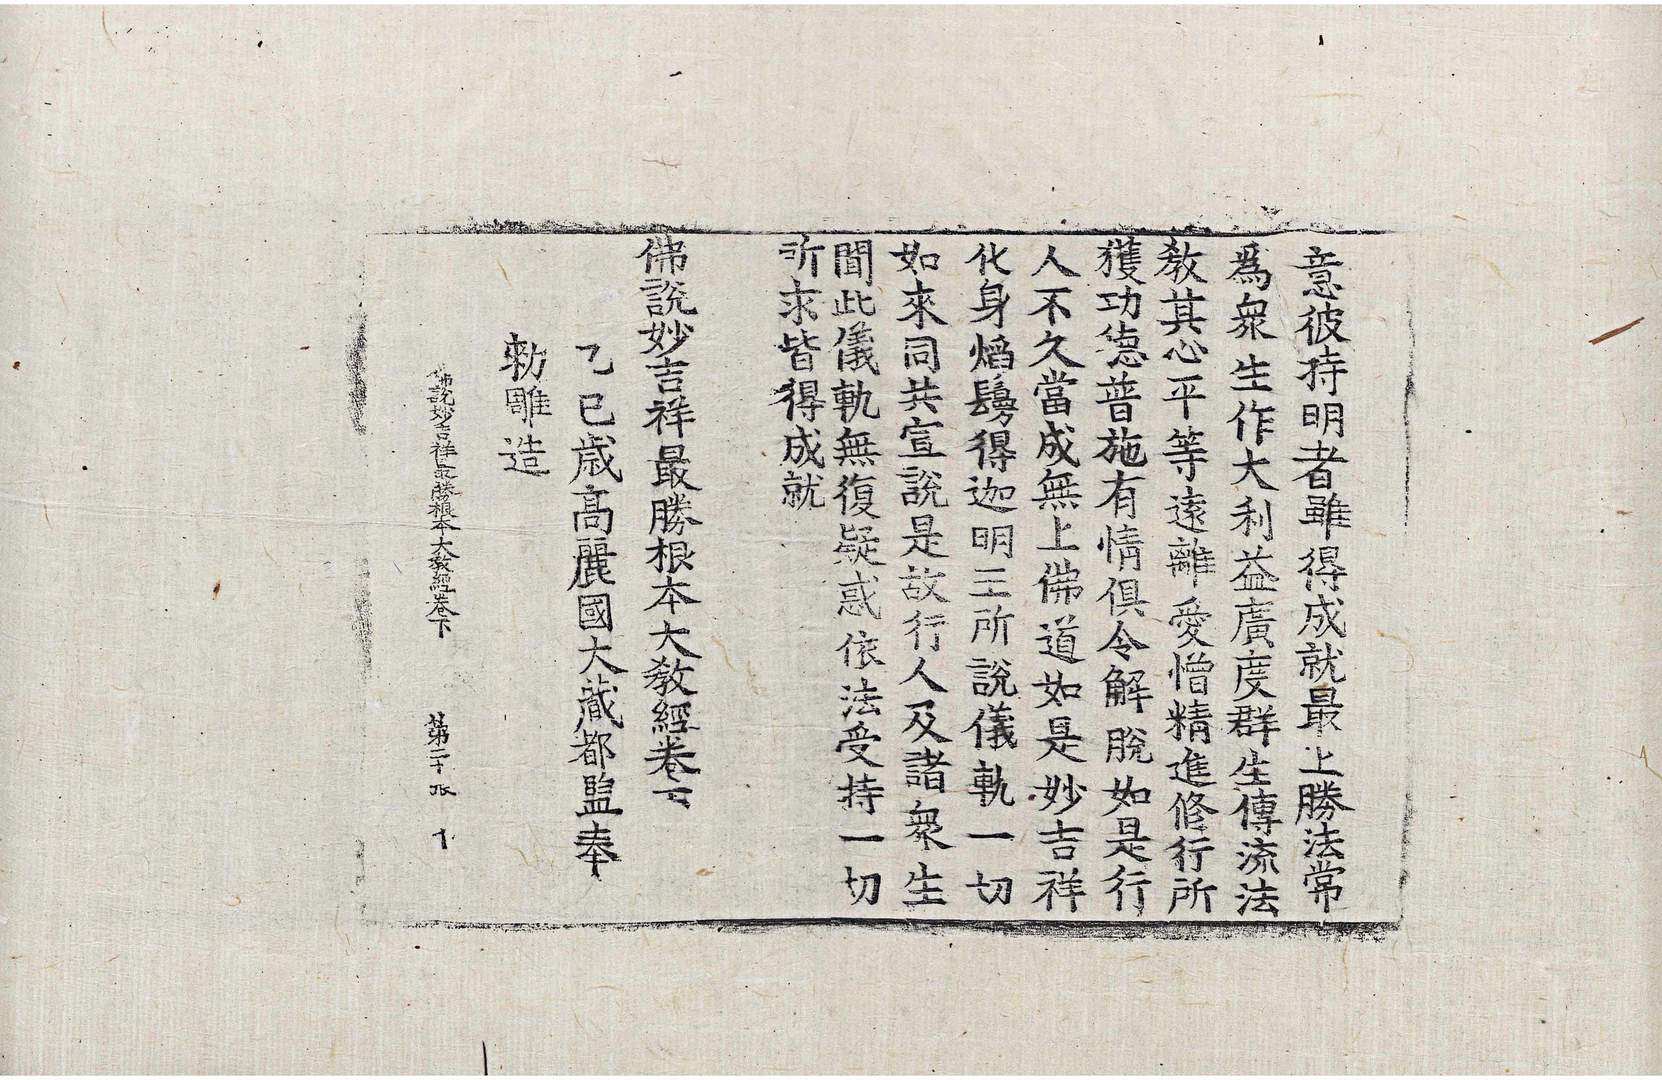 意彼持明者雖得成就最上勝法常
爲衆生作大利益廣度群生傳流法
教其心平等遠離愛憎精進修行所
獲功德普施有情俱令解脫如是行
人不久當成無上佛道如是妙吉祥
化身熖鬘得迦明王所說儀軌一切
如來同共宣說是故行人及諸衆生
聞此儀軌無復疑惑依法受持一切
所求皆得成就
佛說妙吉祥最勝根本大教經卷下
乙巳歲高麗國大藏都監奉
勅雕造
佛說妙吉祥最勝根本大教經卷下 第二十張